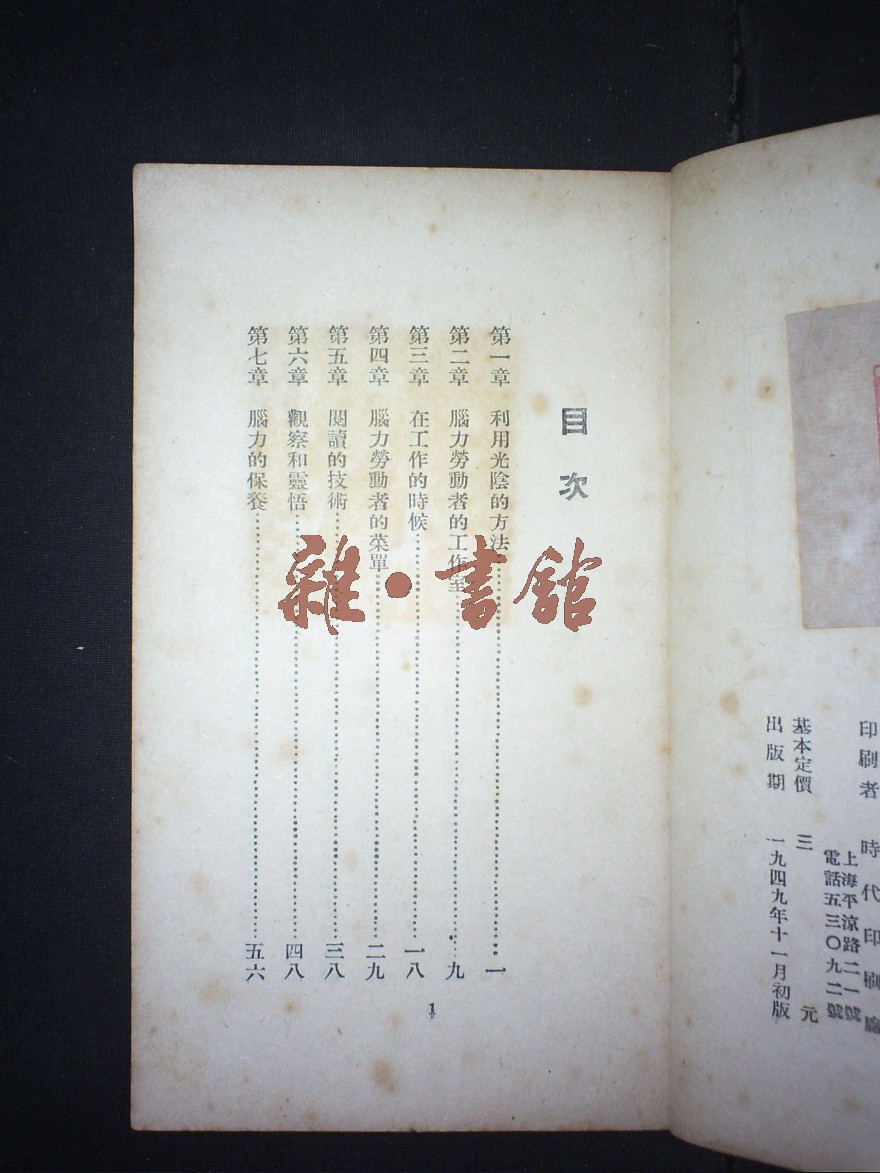 印刷者 時代印刷廠
上海平涼路二一號
電話五三〇九二號
基本定價 三元
出版期 一九四九年十一月初版
目次
第一章 利用光陰的方法……一
第二章 腦力勞動者的工作室……九
第三章 在工作的時候……一八
第四章 腦力勞動者的菜單……二九
第五章 閱讀的技術……三八
第六章 觀察和靈悟……四八
第七章 腦力的保養……五六
1
雜·書館